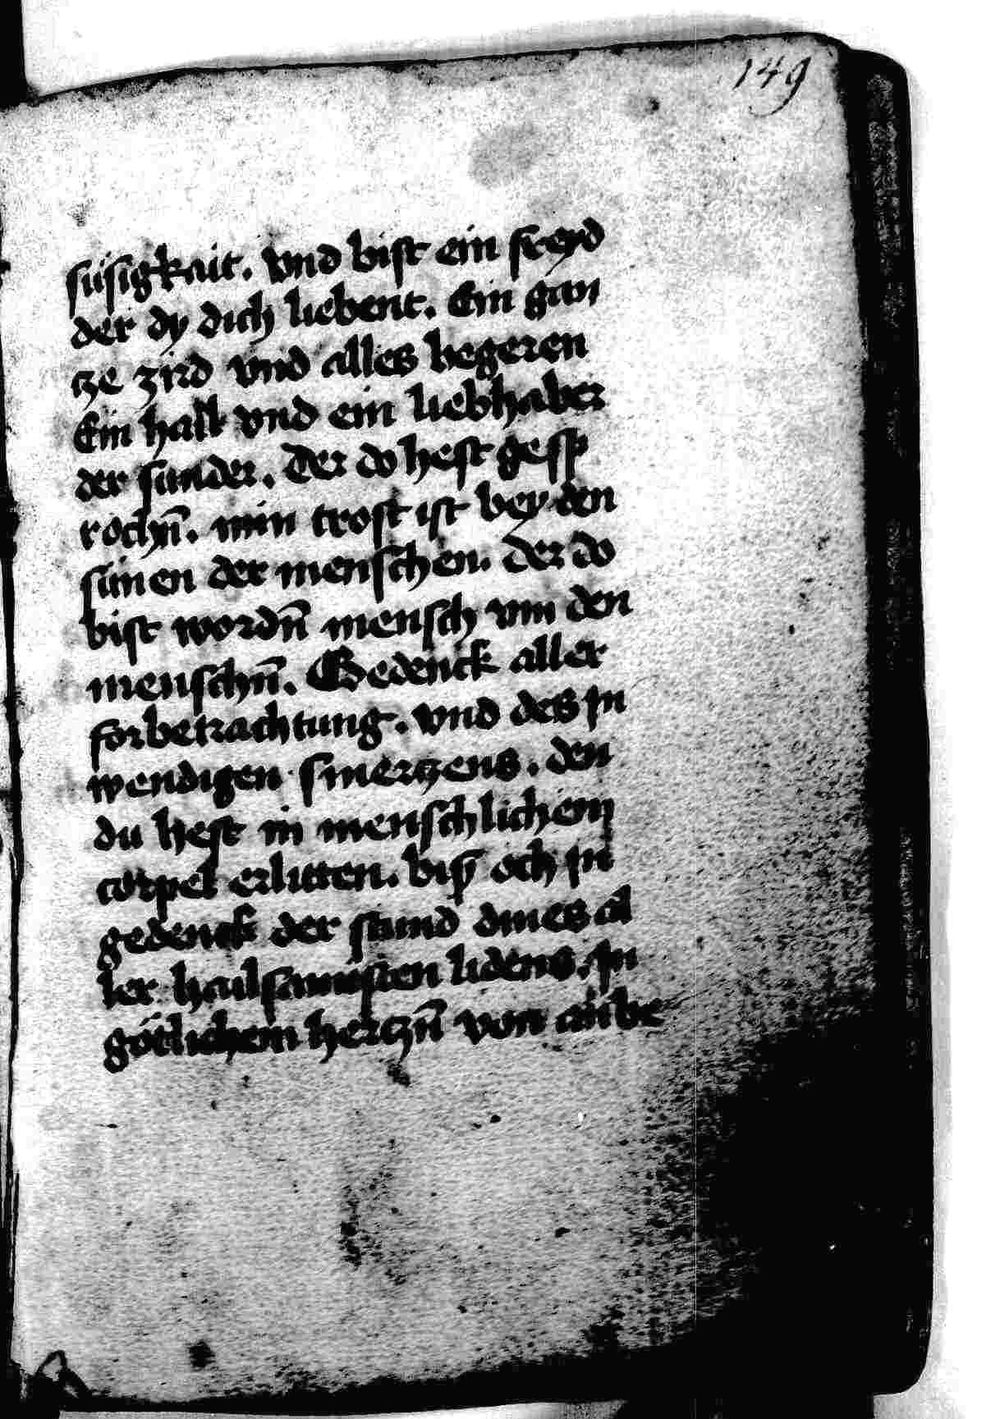 149
süsigkait. vnd bist ein freyd
der dy dich liebent. Ein gan
tze zird vnd alles begeren
Ein hall vnd ein liebhaber
der sunder. Der do hest gesp
rochn̄. min trost ist bey den
sünen der menschen. Der do
bist wordn̄ mensch vm den
menschn̄. Gedenck aller
forbetrachtung. vnd des In
wendigen smertzens. den
du hest in menschlichem
corpel erlitten. biß och In
gedenck der stund dines al
ler hailsamisten lidens. In
götlichem hertzn̄ von anbe